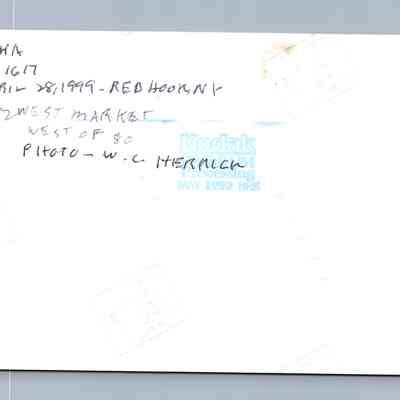 1617
28, 1999 - RED HOOK NY
WEST MARKET
WEST OF 80
PHOTO - W. C HERRICK
Kodak
Processing
MAY 1999